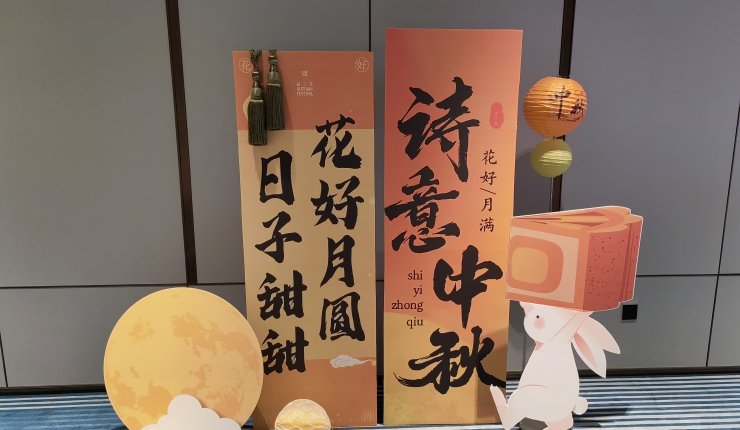 花
好
MID
AUTUMN
FESTIVAL
花好月圆
日子甜甜
圆
诗意
中秋
花好/月满
shi
yi
zhong
qiu
中秋